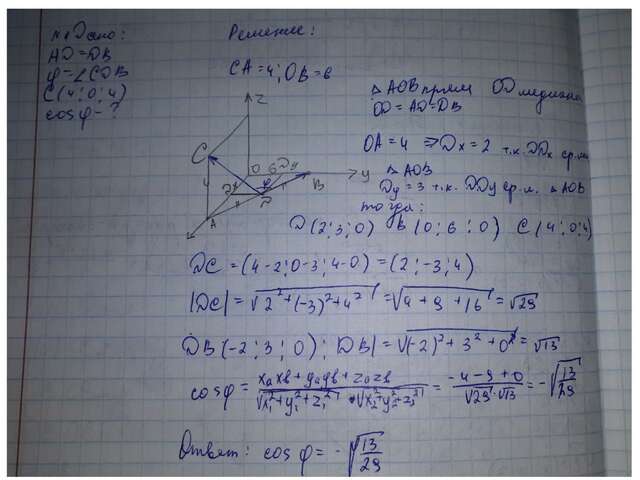 Дано:
AD = DB
φ = ∠CDB
C(4; 0; 4)
cosφ - ?
Решение:
CA = 4; OB = 6
△ AOB прям OD медиана
OD = AD = DB
OA = 4 ⇒ Dx = 2 т.к. DDx ср.л
△ AOB
Dy = 3 т.к. DDy ср.л. △ AOB
тогда:
Z
C
4
O 6 Dy
Dx φ
B
y
D
A
D (2; 3; 0) B (0; 6; 0) C (4; 0; 4)
DC = (4-2; 0-3; 4-0) = (2; -3; 4)
|DC| = √2² + (-3)² + 4² = √4 + 9 + 16 = √29
DB (-2; 3; 0); |DB| = √(-2)² + 3² + 0² = √13
cosφ = xaxb + yayb + zazb / √x₁² + y₁² + z₁² • √x₂² + y₂² + z₂² = -4 - 9 + 0 / √29 · √13 = -√13/29
Ответ: cos φ = -√13/29